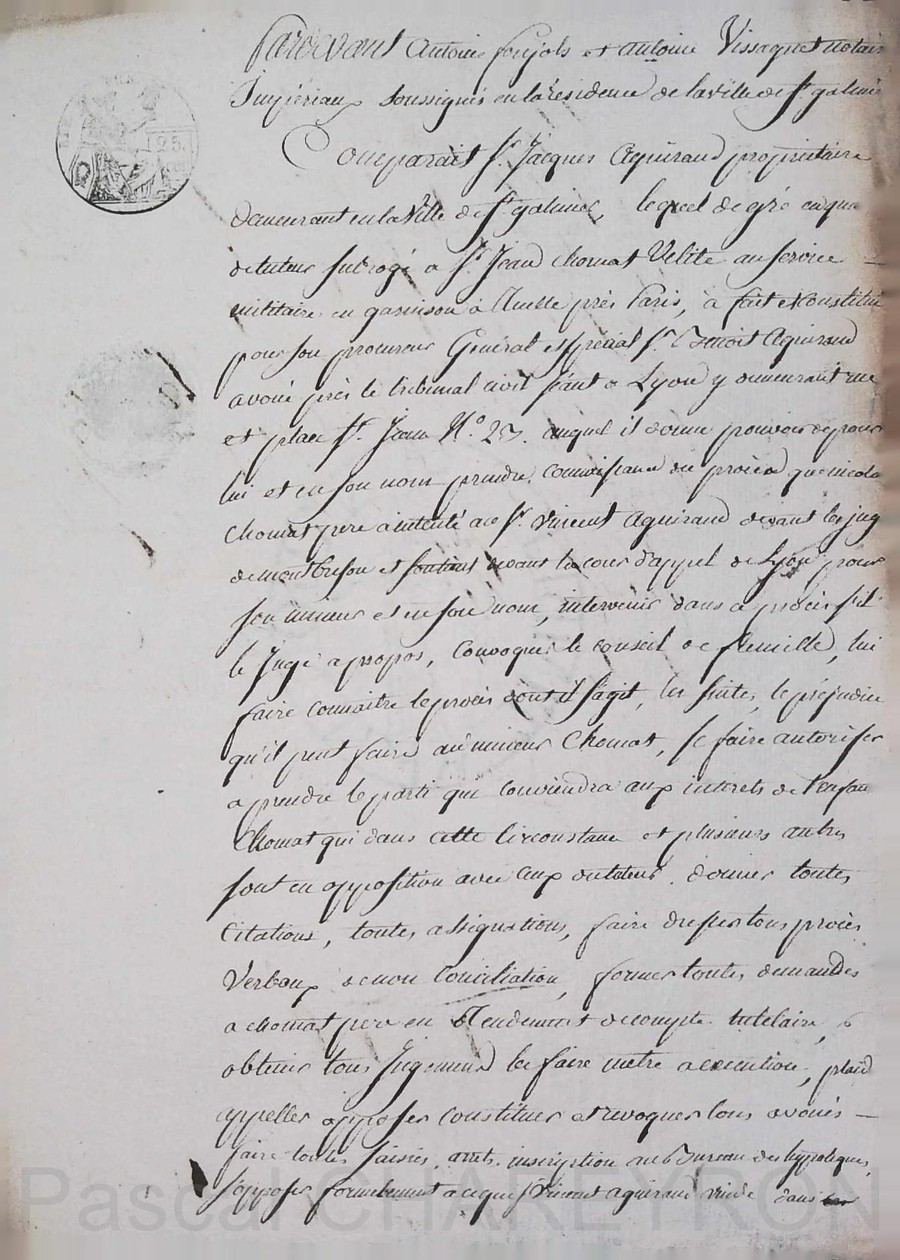 Pardevant Antoine foujols et antoine Vissaguet notair
Impériaux soussignés en la résidence de la ville de St. galmier
Comparait Sr. Jacques Aguiraud propriétaire
demeurant en la Ville de St. galmier, lequel de gré en qua
de tuteur subrogé a Sr. Jean Chomat Vélite au service
militaire en garnison à près Paris, à fait et constitué
pour son procureur Général et spécial Sr. Benoit Aguiraud
avoué près le tribunal civil séant a Lyon y demeurant rue
et place St. Jean N.o 23. auquel il donne pouvoir de pour
lui et en son nom prendre connoissance du procès que nicolas
Chomat pere a intenté a Sr. Vincent Aguiraud devant les jug
de montbrison et soutenu devant la cour d'appel de Lyon pour
son mineur et en son nom, intervenir dans ce procès s'il
le Juge a propos, Convoquer le conseil de famille, lui
faire connaitre le procès dont il s'agit, les suites, le préjudice
qu'il peut faire au mineur Chomat, se faire autoriser
a prendre le parti qui conviendra aux interets de l'enfan
Chomat qui dans cette circonstance et plusieurs autres
sont en opposition avec ceux du tuteur. donner toutes
Citations, toutes assignations, faire dresser tous procès
Verbaux de non Conciliation, former toutes demandes
a chomat pere en Rendement de compte tutélaire,
obtenir tous Jugements les faire metre a execution, plaid
appeller opposer constituer et revoquer tous avoués
faire toutes saisies, arrets, inscription au Bureau des hypoteques,
s'opposer formelement a ce que Sr. Vincent aguiraud vuide dans
25.
Pascal CHAREYRON